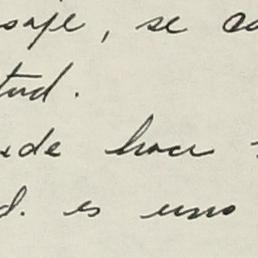 saje, se co
tud.
ede hace
d. es uno